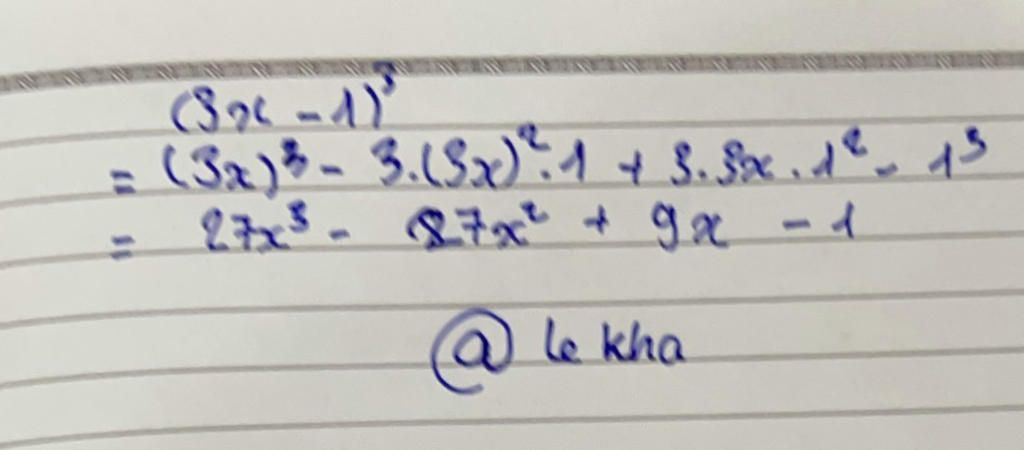 (3x - 1)³
= (3x)³ - 3.(3x)².1 + 3.3x.1² - 1³
= 27x³ - 27x² + 9x - 1
@ le kha